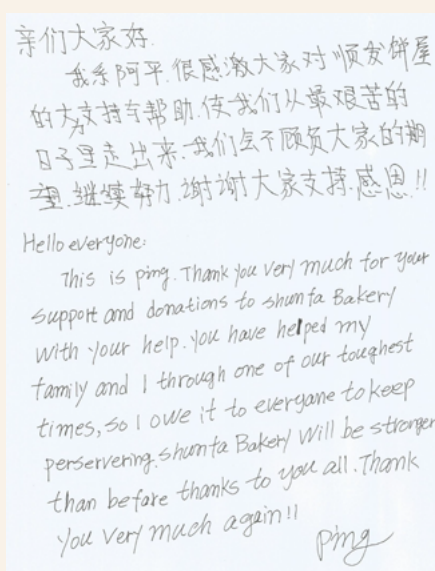 亲们大家好.
我系阿平.很感激大家对顺发饼屋
的大力支持与帮助.使我们从最艰苦的
日子里走出来.我们会不顾负大家的期
望.继续努力.谢谢大家支持.感恩!!
Hello everyone:
This is ping. Thank you very much for your
support and donations to shunfa Bakery
with your help. you have helped my
family and I through one of our toughest
times, so I owe it to everyone to keep
perservering. shunfa Bakery will be stronger
than before thanks to you all. Thank
you very much again!!
ping